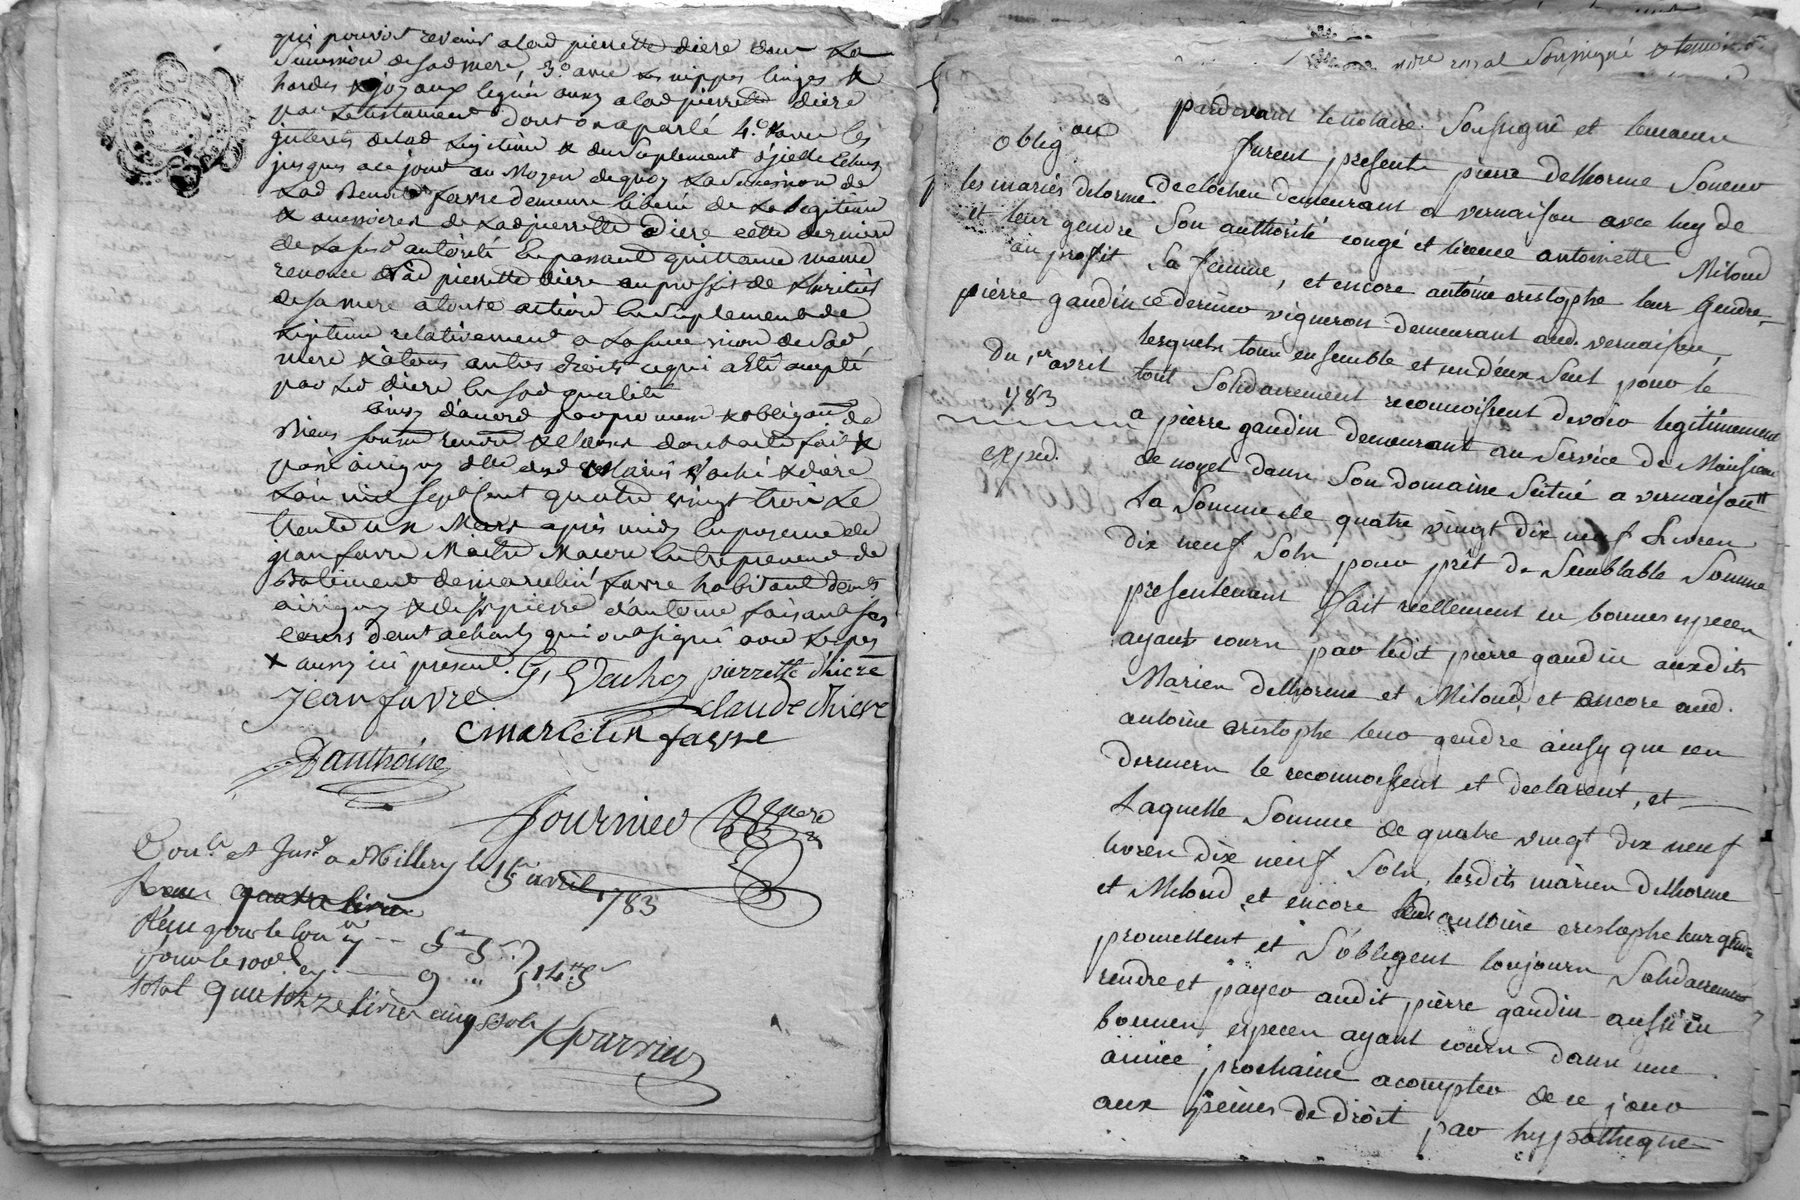 qui pouvoit revenir a lad pierrette diere dans la
succession de sad mere, 3.o avec les nippes linges &
hardes & joyaux legués aussy a lad pierrette diere
par le testament dont on a parlé 4.o avec les
interets de lad legitime & du suplement d'jcelle echus
jusques a ce jour au moyen de quoy la succession de
lad Benoite favre demeure liberée de la legitime
& accessoires de lad pierrette diere cette derniere
de lasusd autorité en passant quittance même
renonce lad pierrette diere au proffit de
de sa mere a toute action en suplement de
legitime relativement a la succession de sad
mere & à tous autres droits ce qui a été accepté
par led diere en sad qualité
ainsy d'accord se soumis & obligeans de
Biens renon & clauses dont acte fait &
passé a irigny des mariés Vachéz & diere
L'an mil sept cent quatre vingt trois le
trente un Mars après midy en presence de
jean favre Maitre Macon entrepreneur de
Batiments de marcelin favre habitant dud
irigny & de sr pierre d'antoine faisant ses
cours dem.t a charly qui ont signé avec les p.es
& aussy ici present. G. Vachez pierrette dhiere
Jean favre claude dhiere
C marcelin favre
Danthoine
fournier Nre
Con.lé et Ins.é a Millery le 15 avril 1783
Reçu quatre livres
Reçu pour le con.lle — 5 5
pour le 100e — 9 „ 14 5
total quatorze livres cinq Sols
nore roial Soussigné & temoins
pardevant le notaire Soussigné et temoins
furent presents pierre delhorme Soneur
Oblig.on
les mariés delorme
et leur gendre
au profit
pierre gaudin
Du 1.er avril
1783
exped.
De cloches demeurant a vernaison avec luy de
Son authorité congé et licence antoinette Miloud
Sa femme, et encore antoine cristophe leur Gendre
ce dernier vigneron demeurant aud. vernaison,
lesquels tous ensemble et un d'eux Seul pour le
tout Solidairement reconnoissent devoir legitimement
a pierre gaudin demeurant au Service de Monsieur
de noyel dans Son domaine Scitué a vernaison
La Somme de quatre vingt dix neuf Livres
dix neuf Sols pour prêt de Semblable Somme
presentement fait reellement en bonnes especes
ayant cours par ledit pierre gaudin auxdits
Mariés delhorme et Miloud, et encore aud.
antoine cristophe leur gendre ainsy que ces
derniers le reconnoissent et declarent, et —
Laquelle Somme de quatre vingt dix neuf
livres dix neuf Sols, lesdits mariés delhorme
et Miloud et encore led. antoine cristophe leur gendre
promettent et S'obligent toujours Solidairement
rendre et payer audit pierre gaudin aussi en
bonnes especes ayant cours dans une
année prochaine a compter de ce jour
aux peines de droit par hypotheque